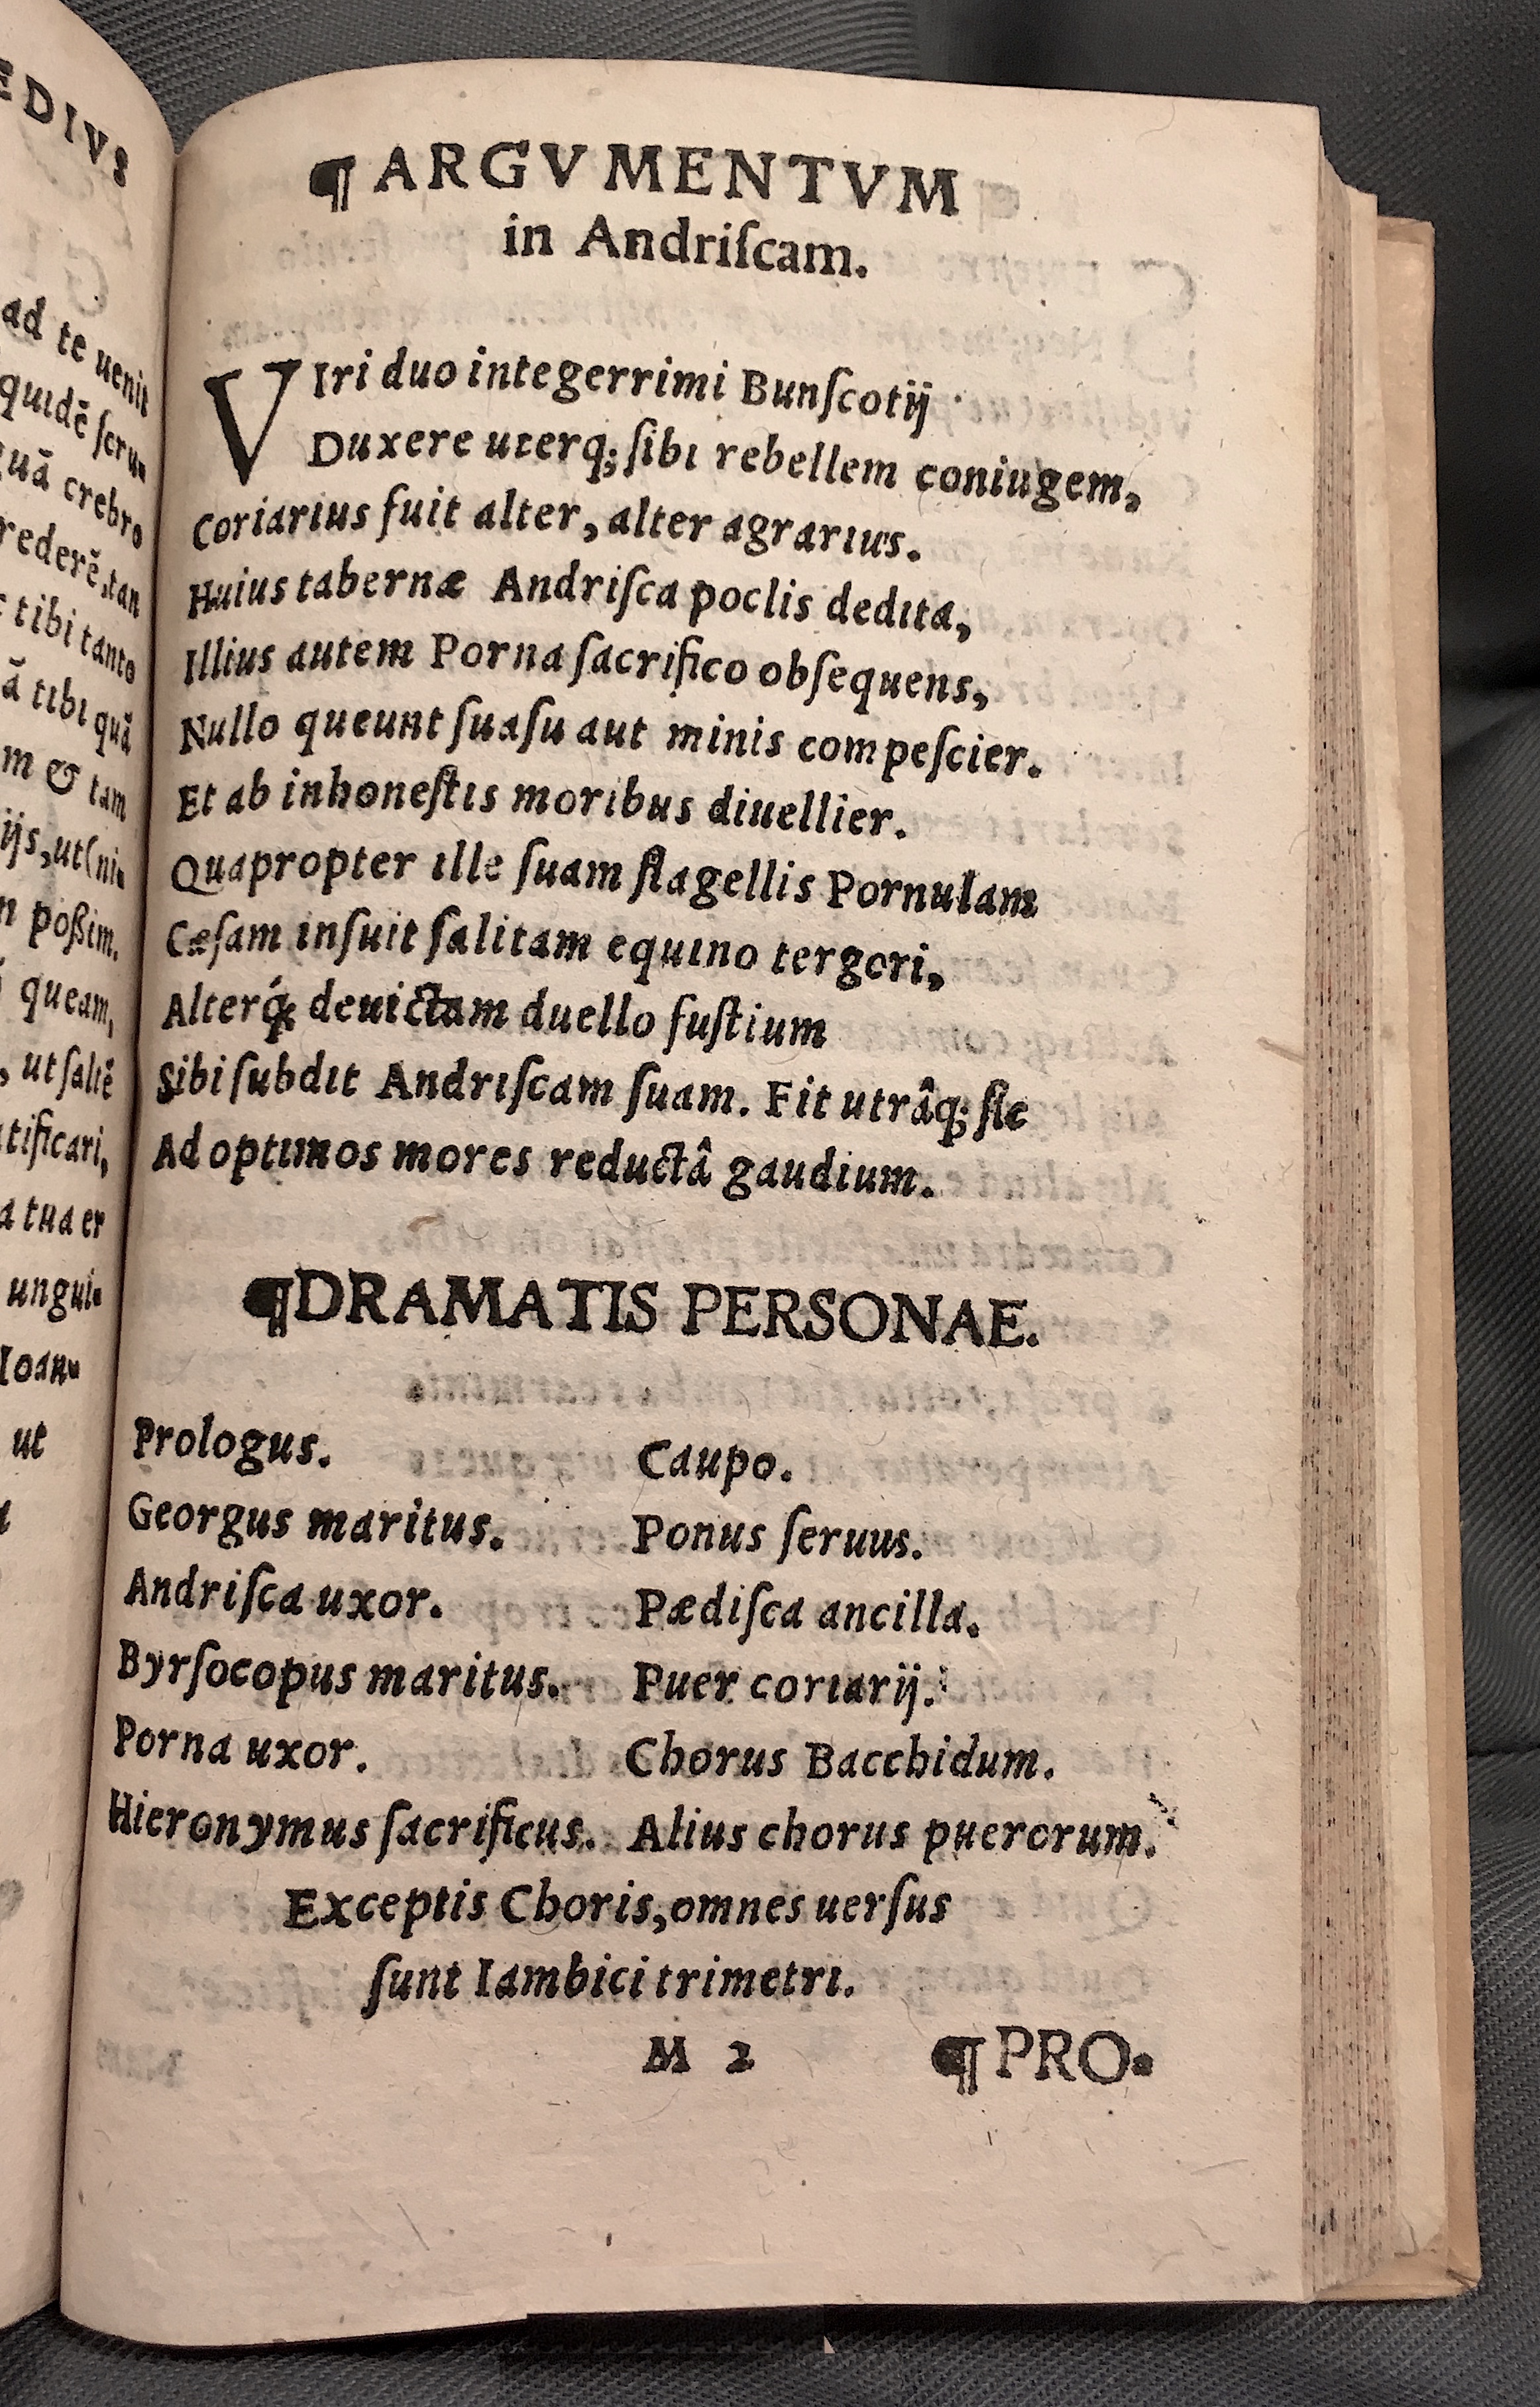 EDIVS
ad te uenit
quidē seru-
quā crebro
rederē, tan
tibi tanto
ā tibi quā
m & tam
ijs, ut (ni-
poßim.
queam,
, ut saltē
tificari,
a tua er
ungui-
Ioan-
ut
¶ ARGVMENTVM
in Andriſcam.
VIri duo integerrimi Bunſcotij
Duxere uterq; ſibi rebellem coniugem,
Coriarius fuit alter, alter agrarius.
Huius tabernæ Andriſca poclis dedita,
Illius autem Porna ſacrifico obſequens,
Nullo queunt ſuaſu aut minis compeſcier.
Et ab inhoneſtis moribus diuellier.
Quapropter ille ſuam flagellis Pornulam
Cæſam inſuit ſalitam equino tergori,
Alterq́; deuictam duello fuſtium
Sibi ſubdit Andriſcam ſuam. Fit utrâq; ſic
Ad optimos mores reductâ gaudium.
¶DRAMATIS PERSONAE.
Prologus. Caupo.
Georgus maritus. Ponus ſeruus.
Andriſca uxor. Pædiſca ancilla.
Byrſocopus maritus. Puer coriarij.
Porna uxor. Chorus Bacchidum.
Hieronymus ſacrificus. Alius chorus puerorum.
Exceptis Choris, omnes uerſus
ſunt Iambici trimetri.
M 2 ¶PRO-